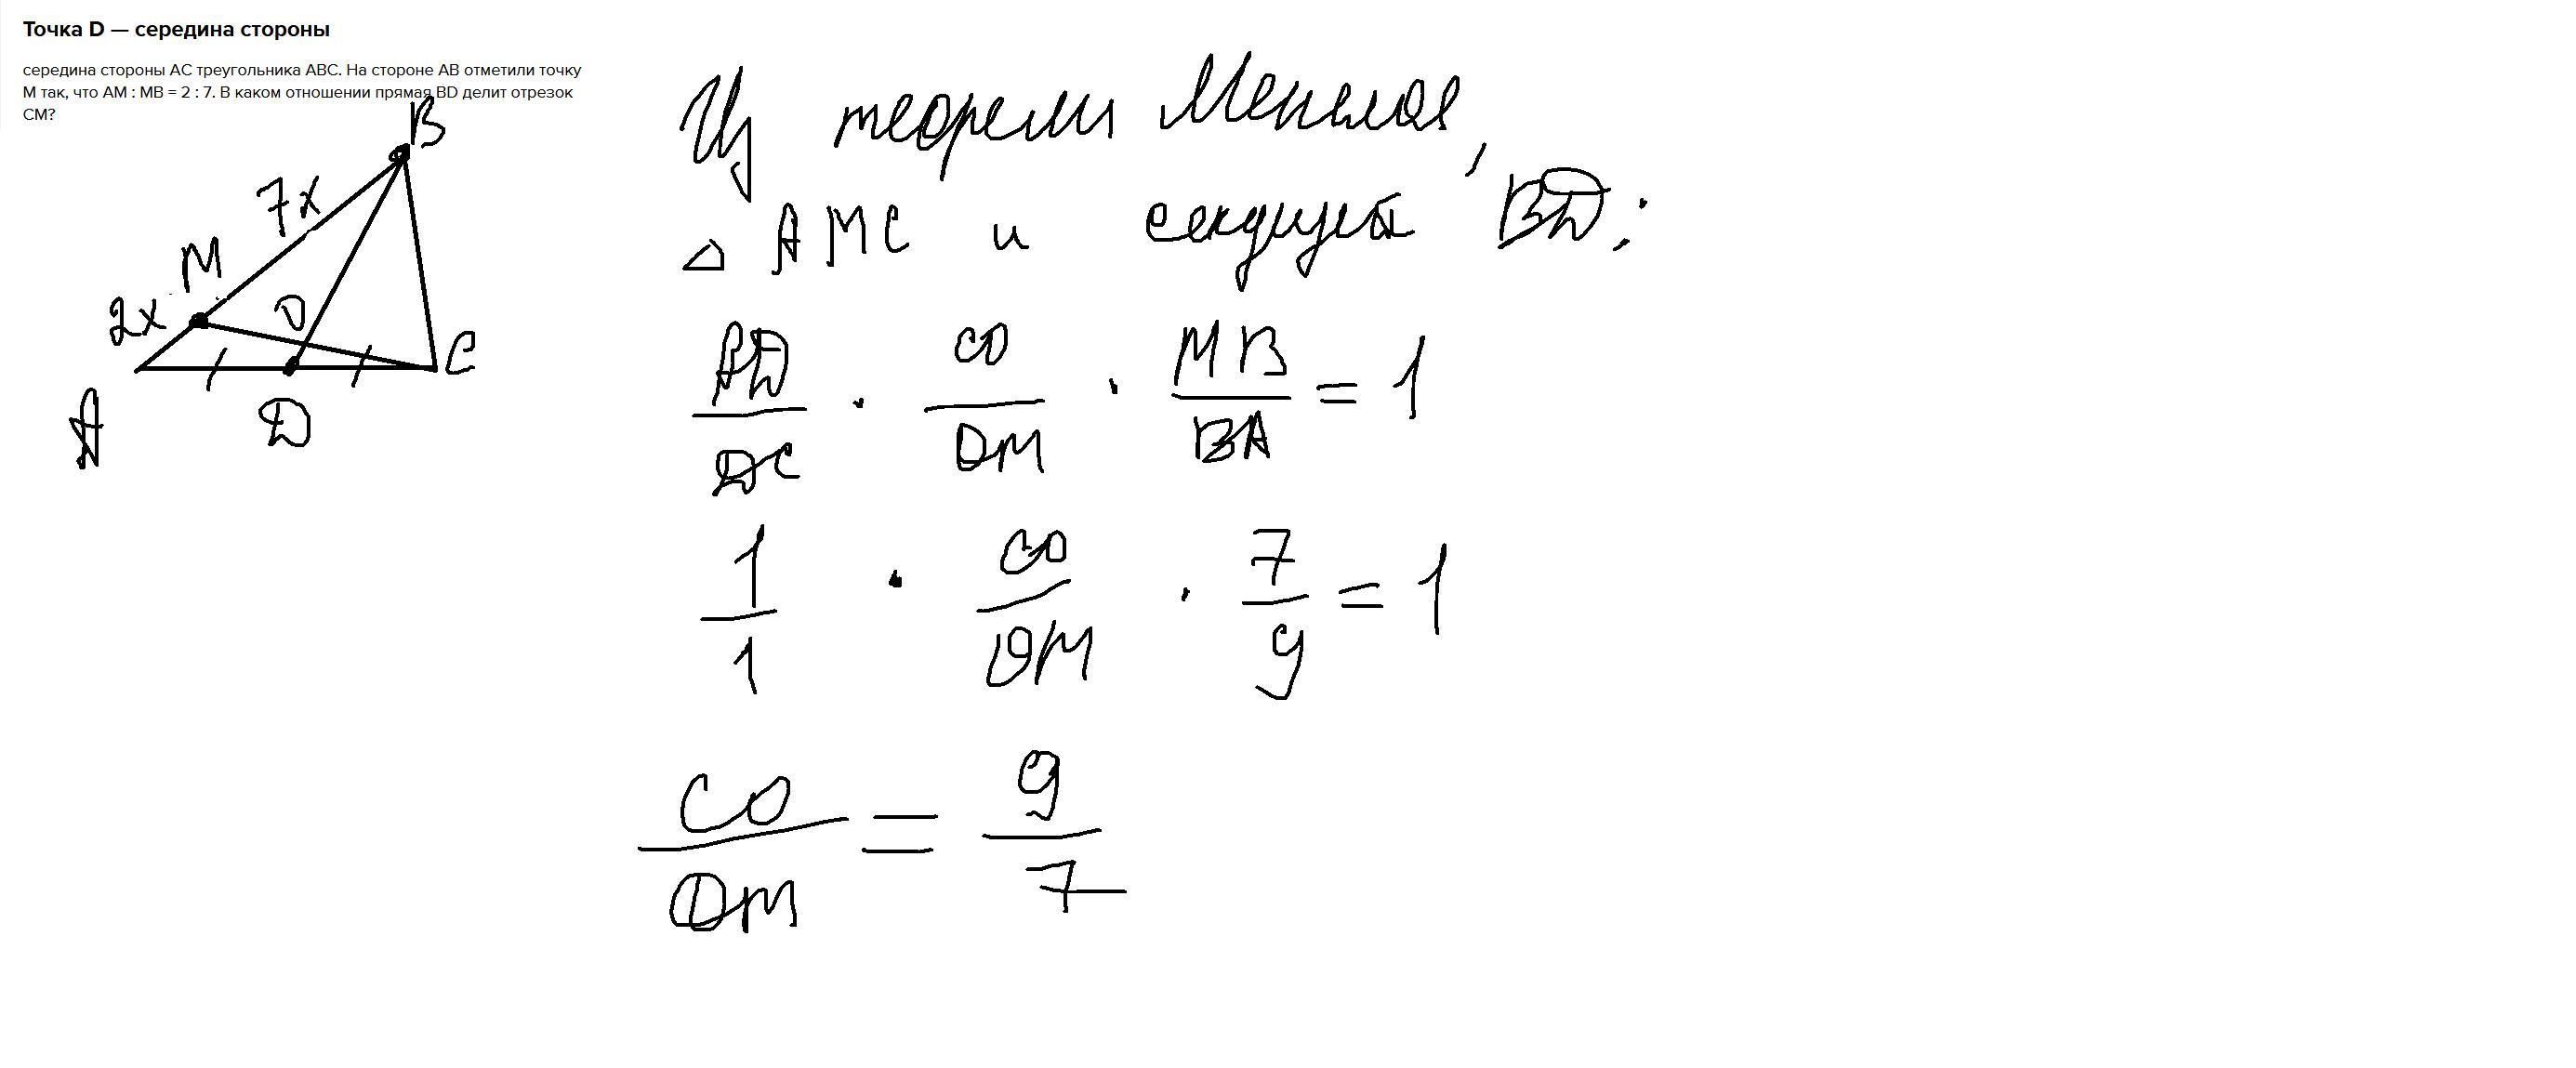 Точка D — середина стороны
середина стороны AC треугольника ABC. На стороне AB отметили точку
M так, что AM : MB = 2 : 7. В каком отношении прямая BD делит отрезок
CM?
B
7x
M
2x
O
C
A
D
Из теоремы Менелая,
△ AMC и секущей BD:
AD/DC · CO/OM · MB/BA = 1
1/1 · CO/OM · 7/9 = 1
CO/OM = 9/7